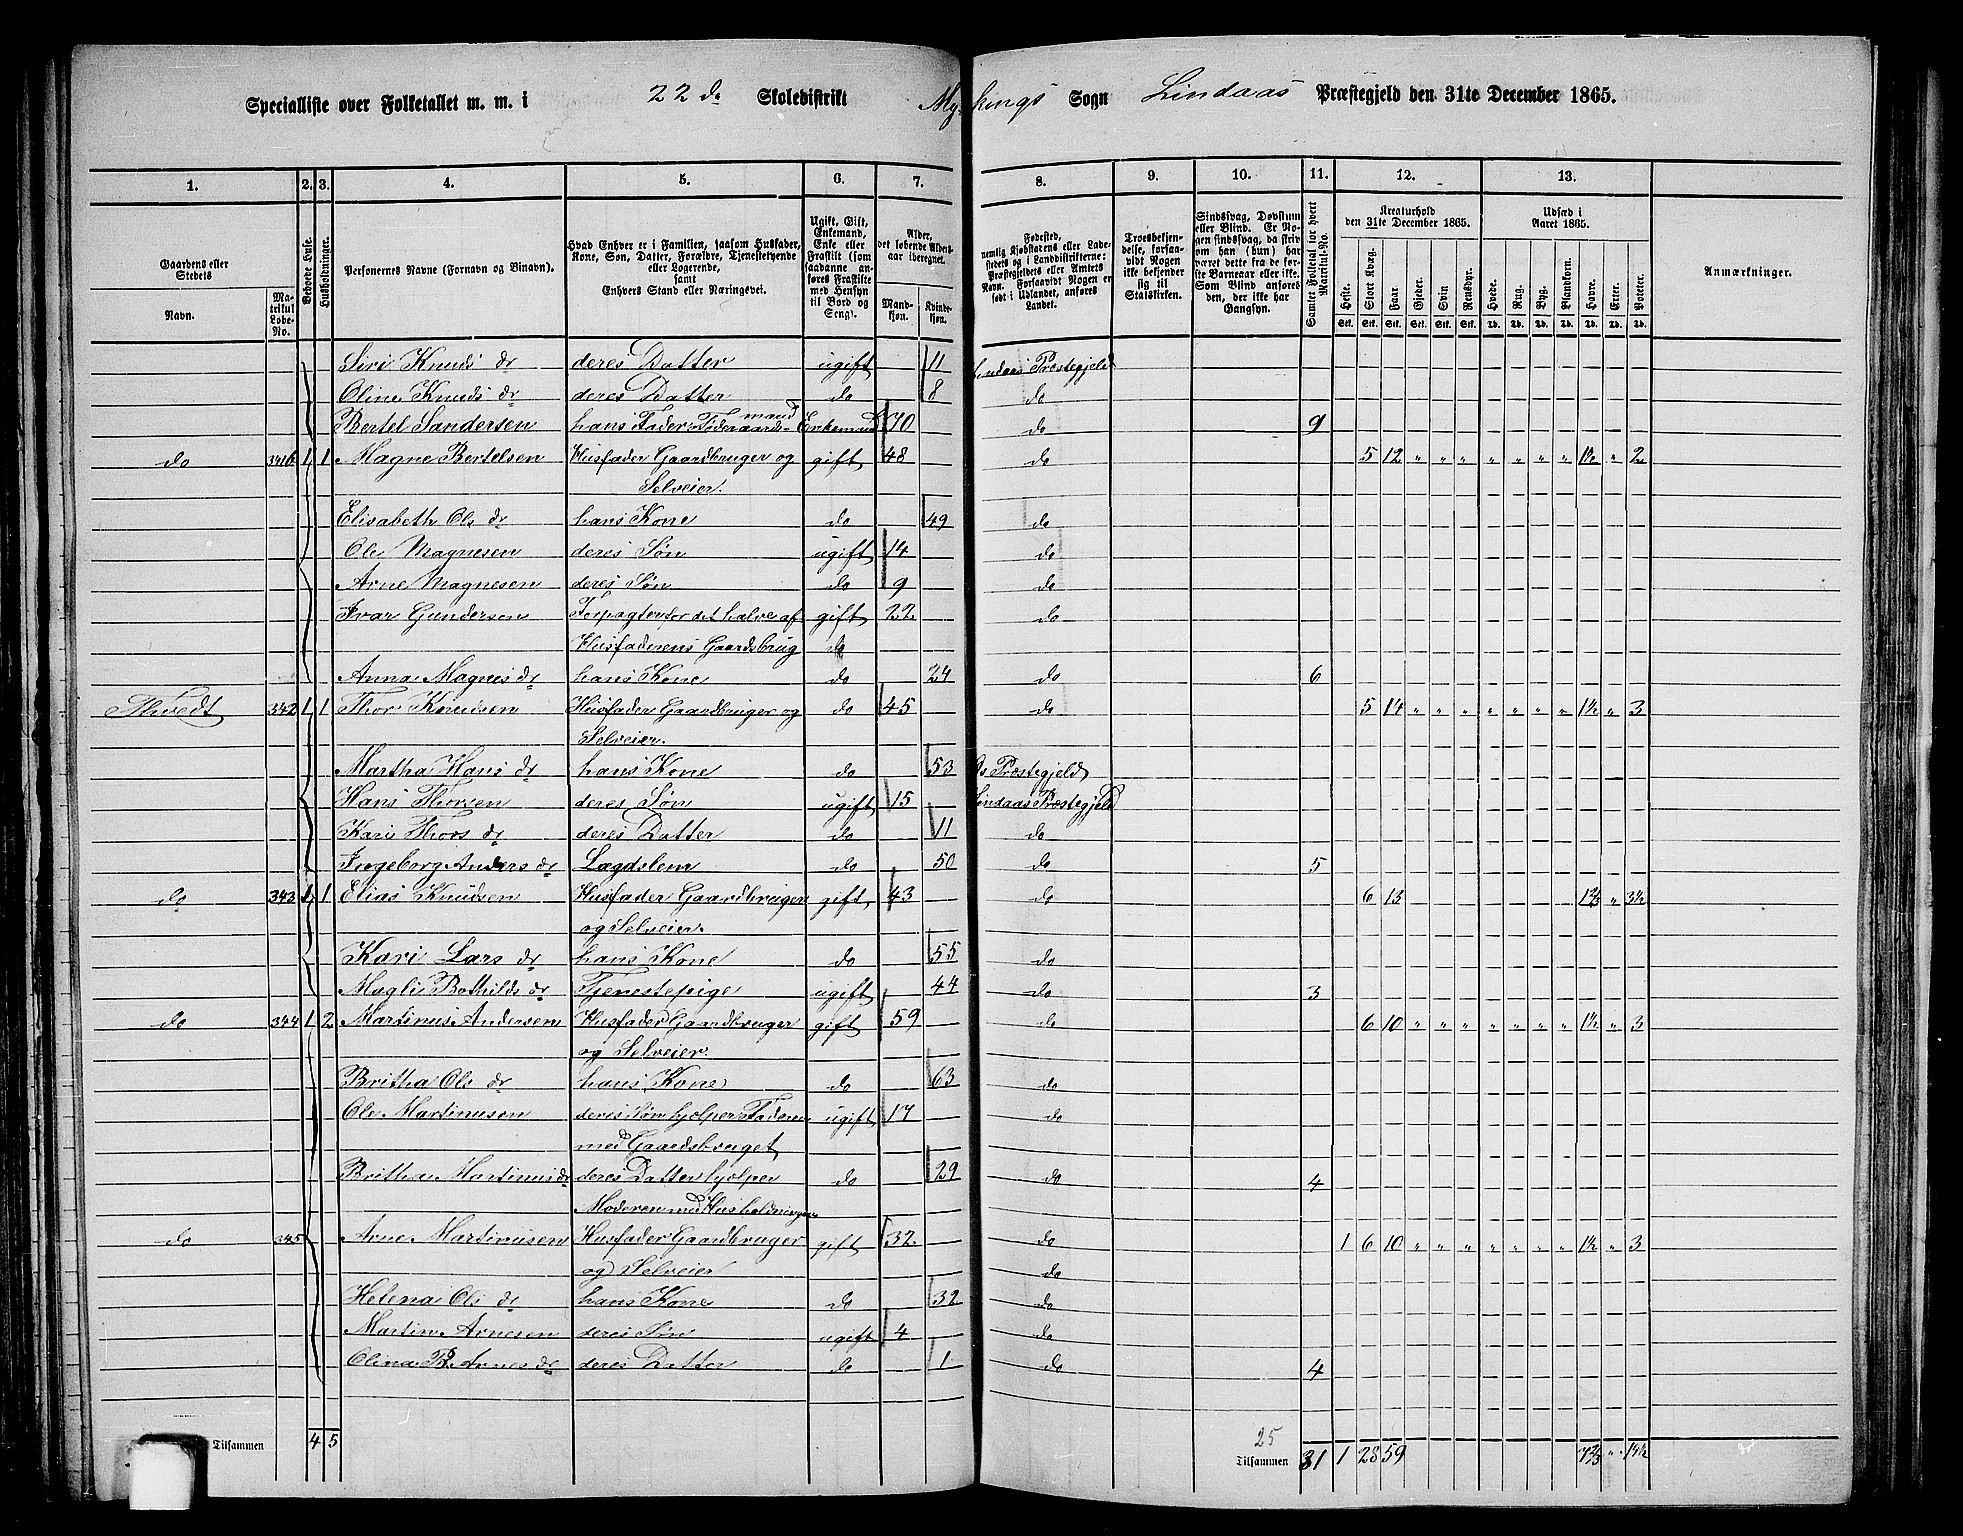 Specialliste over Folketallet m. m. i 22de Skoledistrikt Myckings Sogn Lindaas Præstegjeld den 31te December 1865.
1. 2. 3. 4. 5. 6. 7. 8. 9. 10. 11. 12. 13.
Gaardens eller Stedets
Navn.
Matrikul Løbe-No.
Beboede Huse.
Husholdninger.
Personernes Navne (Fornavn og Binavn).
Hvad Enhver er i Familien, saasom Husfader, Kone, Søn, Datter, Forældre, Tjenestetyende eller Logerende, samt Enhvers Stand eller Næringsvei.
Ugift, Gift, Enkemand, Enke eller Fraskilt (som saadanne anføres Fraskilte med Hensyn til Bord og Seng).
Alder, det løbende Alders-aar iberegnet.
Mand-kjøn. Kvinde-kjøn.
Fødested, nemlig Kjøbstadens eller Ladestedets og i Landdistrikterne: Præstegjeldets eller Amtets Navn. Forsaavidt Nogen er født i Udlandet, anføres Landet.
Troesbekjendelse, forsaavidt Nogen ikke bekjender sig til Statskirken.
Sindssvag, Døvstum eller Blind. Er Nogen sindssvag, da skriv om han (hun) har været dette fra de første Barneaar eller ikke. Som Blind anføres den, der ikke har Gangsyn.
Samlet Folketal for hvert Matrikul-No.
Kreaturhold den 31te December 1865.
Heste. Stort Kvæg. Faar. Gjeder. Svin Rensdyr.
Udsæd i Aaret 1865.
Hvede. Rug. Byg. Blandkorn. Havre. Erter. Poteter.
Stk. Stk. Stk. Stk. Stk. Stk. Td. Td. Td. Td. Td. Td. Td.
Anmærkninger.
Siri Knuds dr deres Datter ugift 11 Lindaas Præstegjeld
Oline Knuds dr deres Datter do 8 do
Bertel Sandersen hans Fader Føderaads-mand Enkemand 70 do 9
do 341b 1 1 Magne Bertelsen Husfader Gaardbruger og gift 48 do 5 12 " " " " " " " 1½ " 2
Selveier.
Elisabeth Ols dr hans Kone do 49 do
Ole Magnesen deres Søn ugift 14 do
Arne Magnesen deres Søn do 9 do
Ivar Gundersen Forpagter for det halve af gift 22 do
Husfaderens Gaardsbrug do
Anna Magnes dr hans Kone do 24 do 6
Thvedt 342 1 1 Thor Knudsen Husfader Gaardbruger og do 45 do 5 14 " " " " " " " 1½ " 3
Selveier.
Martha Hans dr hans Kone do 53 Os Præstegjeld
Hans Thorsen deres Søn ugift 15 Lindaas Præstegjeld
Kari Thors dr deres Datter do 11 do
Ingeborg Anders dr Lægdslem do 50 do 5
do 343 1 1 Elias Knudsen Husfader Gaardbruger gift 43 do 6 13 1⅔ " 3½
og Selveier.
Kari Lars dr hans Kone do 55 do
Magli Bothilds dr Tjenestepige ugift 44 do 3
do 344 1 2 Martinus Andersen Husfader Gaardbruger gift 59 do 6 10 " " " " " " " 1½ " 3
og Selveier.
Britha Ols dr hans Kone do 63 do
Ole Martinusen deres Søn hjelper Faderen ugift 17 do
med Gaardsbruget
Britha Martinus dr deres Datter hjelper do 29 do 4
Moderen med Husholdningen
do 345 Arne Martinusen Husfader Gaardbruger gift 32 do 1 6 10 " " " " " " " 1½ " 3
og Selveier do
Helena Ols dr hans Kone do 32 do
Martin Arnesen deres Søn ugift 4 do
Olina B. Arnes dr deres Datter do 1 do 4
25
Tilsammen 4 5 Tilsammen 31 1 28 59 7⅔ " 14½